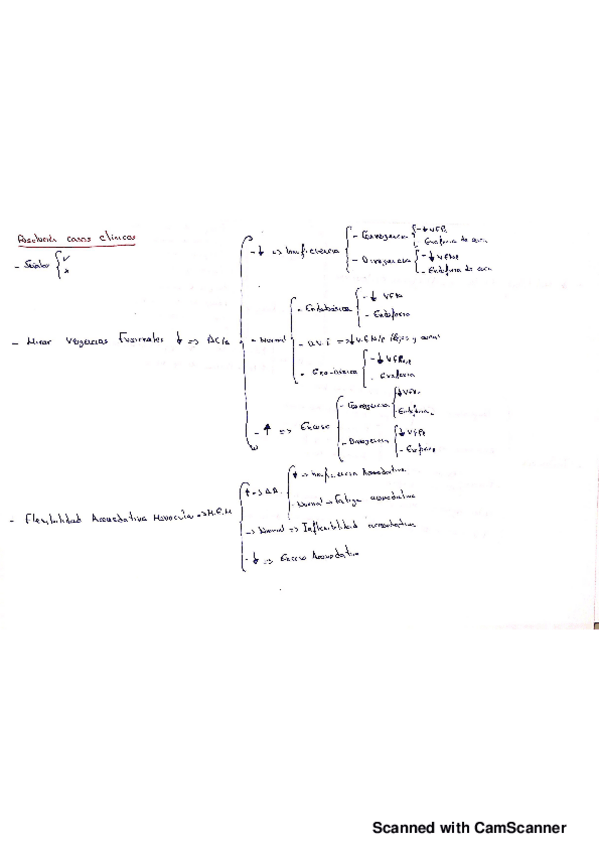 Resolución casos clínicos
- {
- ↓ => Insuficiencia
- Convergencia
- ↓ VFP
- Exoforia de cerca
- Divergencia
- ↓ VFN
- Endoforia de cerca
- Mirar Vergencias Fusionales ↓ => AC/A
- Normal
- Endobásica
- ↓ VFN
- Endoforia
- => ↓ VFN/P lejos y cerca
- Exo-básica
- ↓ VFP
- Exoforia
- ↑ => Exceso
- Convergencia
↓ VFN
- Endoforia
- Divergencia
↓ VFP
- Exoforia
- Flexibilidad Acomodativa Monocular => M.E.M
↑ => AA
↓ => Insuficiencia Acomodativa
Normal => Fatiga acomodativa
-> Normal => Inflexibilidad acomodativa
- ↓ => Exceso Acomodativo
Scanned with CamScanner